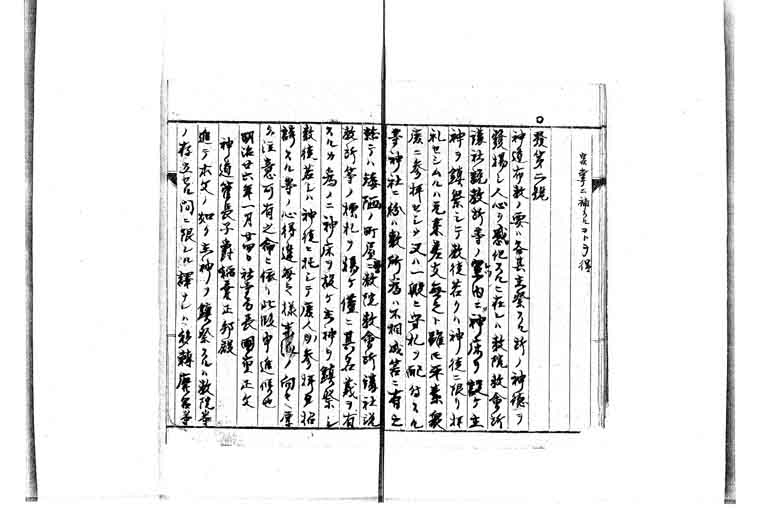 宮掌ニ補スルコトヲ得
發第二號
神道布教ノ要ハ各其主祭スル所ノ神德ヲ
發揚シ人心ヲ感化スルニ在レハ教院教會所
講社説教所等ノ室内ニ神床ヲ設ケ主
神ヲ鎮祭シテ教徒若クハ神徒ニ限リ拝
礼セシムルハ元素差支無之ト雖モ平素衆
庶ニ参拝セシメ又ハ一般ニ守札ヲ配付スル
等神社ニ紛ハ敷所為ハ不相成筈ニ有之
ノ町屋ニ教院教會所講社説
教所等ノ標札ヲ揚ケ僅ニ其名義ヲ有
スルカ為メニ神床ヲ設ケ主神ヲ鎮祭シ
教徒若シハ神徒ニ托シテ庶人ノ参拝ヲ招
誘スル等ノ心得違無之様
注意可有之命ニ依リ此段申進候也
明治廿六年一月廿四日社寺局長國重正文
神道管長子爵稲葉正邦殿
進テ本文ノ如ク主神ヲ鎮祭スルハ教院等
ノ存立セル間ニ限レル譯ナレハ移轉廢合等